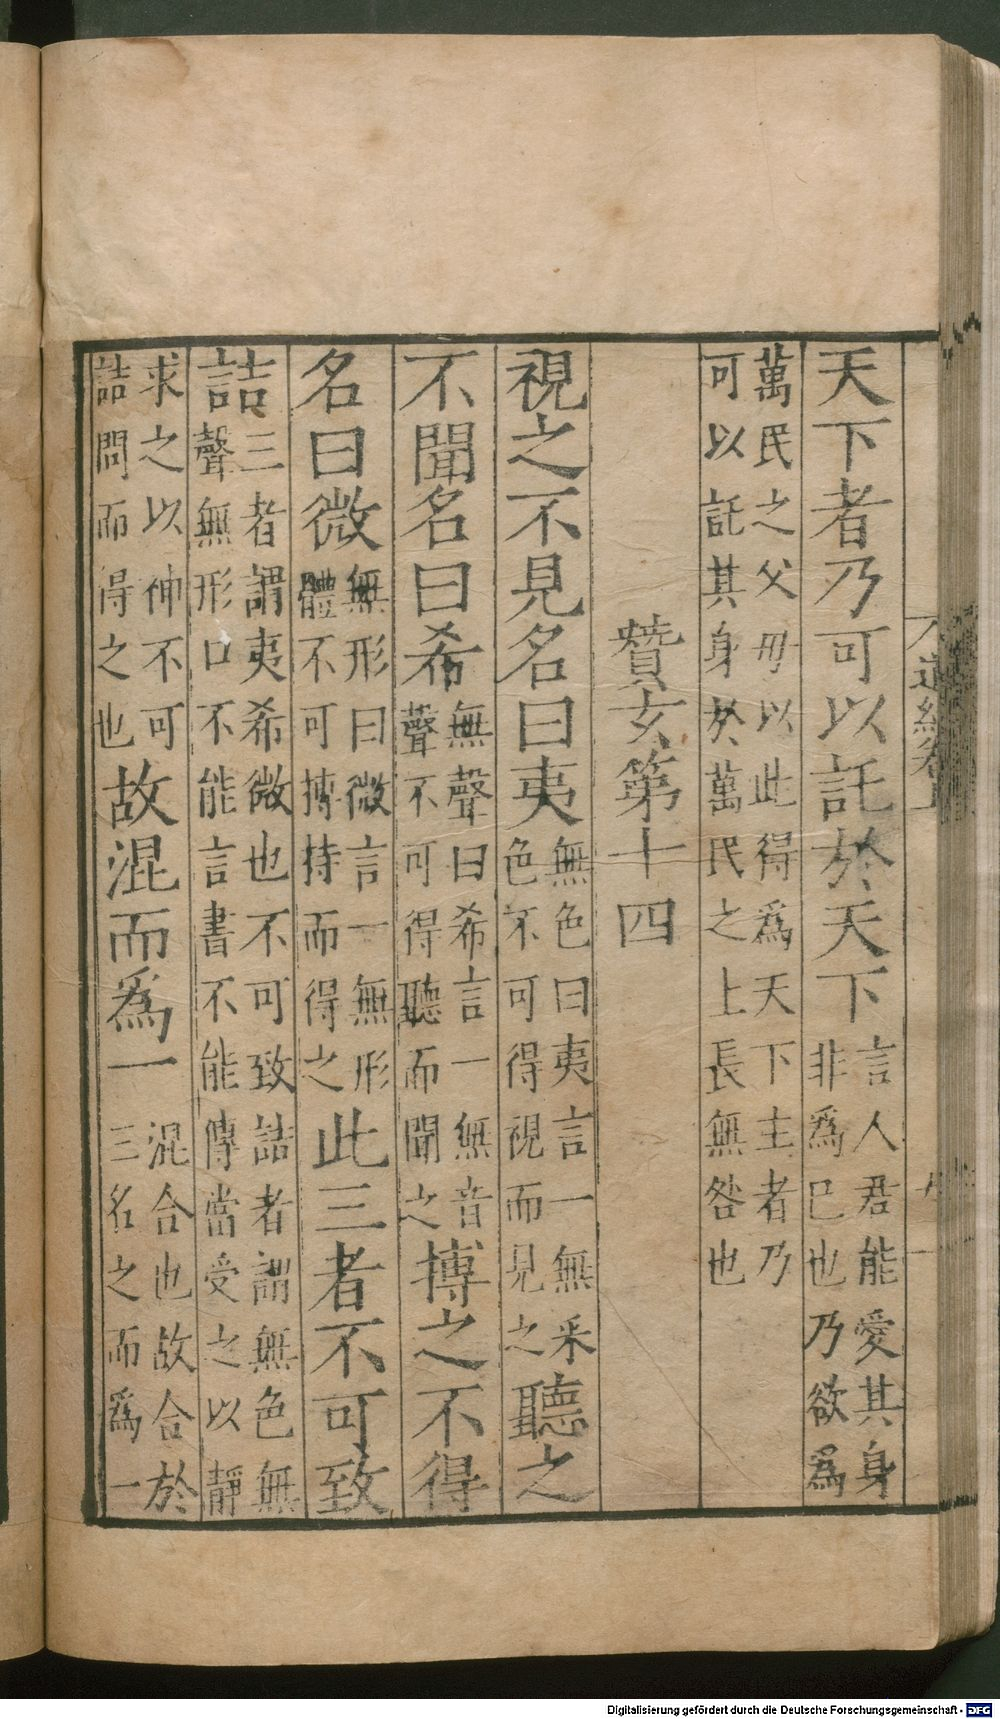 道經卷上
天下者乃可以託於天下言人君能愛其身非爲已也乃欲爲
萬民之父母以此得爲天下主者乃可以託其身於萬民之上長無咎也
贊玄第十四
視之不見名曰夷無色曰夷言一無采色不可得視而見之聽之
不聞名曰希無聲曰希言一無音聲不可得聽而聞之搏之不得
名曰微無形曰微言一無形體不可搏持而得之此三者不可致
詰三者謂夷希微也不可致詰者謂無色無聲無形口不能言書不能傳當受之以靜
求之以神不可詰問而得之也故混而爲一混合也故合於三名之而爲一
Digitalisierung gefördert durch die Deutsche Forschungsgemeinschaft - DFG